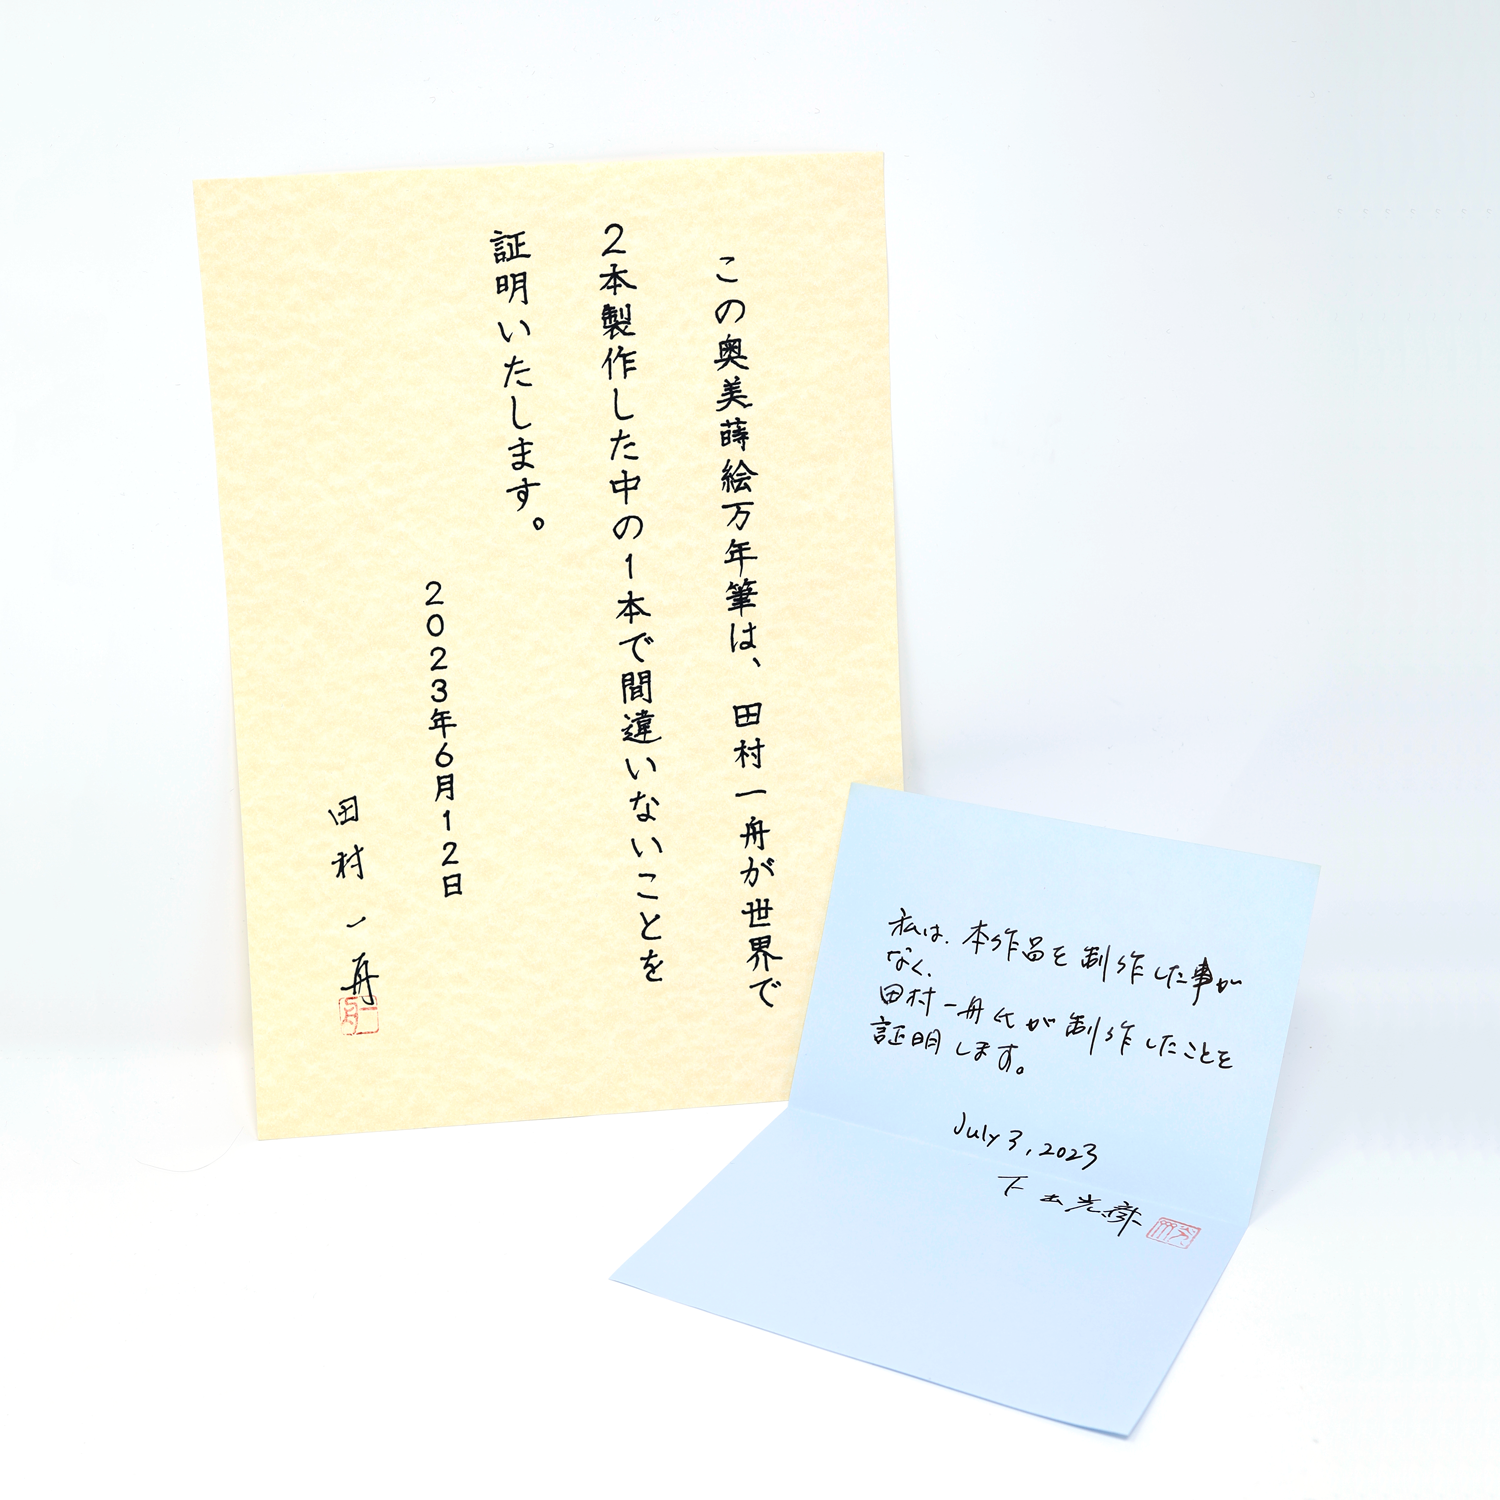 この奥美蒔絵万年筆は、田村一舟が世界で
2本製作した中の1本で間違いないことを
証明いたします。
2023年6月12日
田村一舟
私は、本作品を制作した事が
なく、
田村一舟氏が制作したことを
証明します。
July 3, 2023